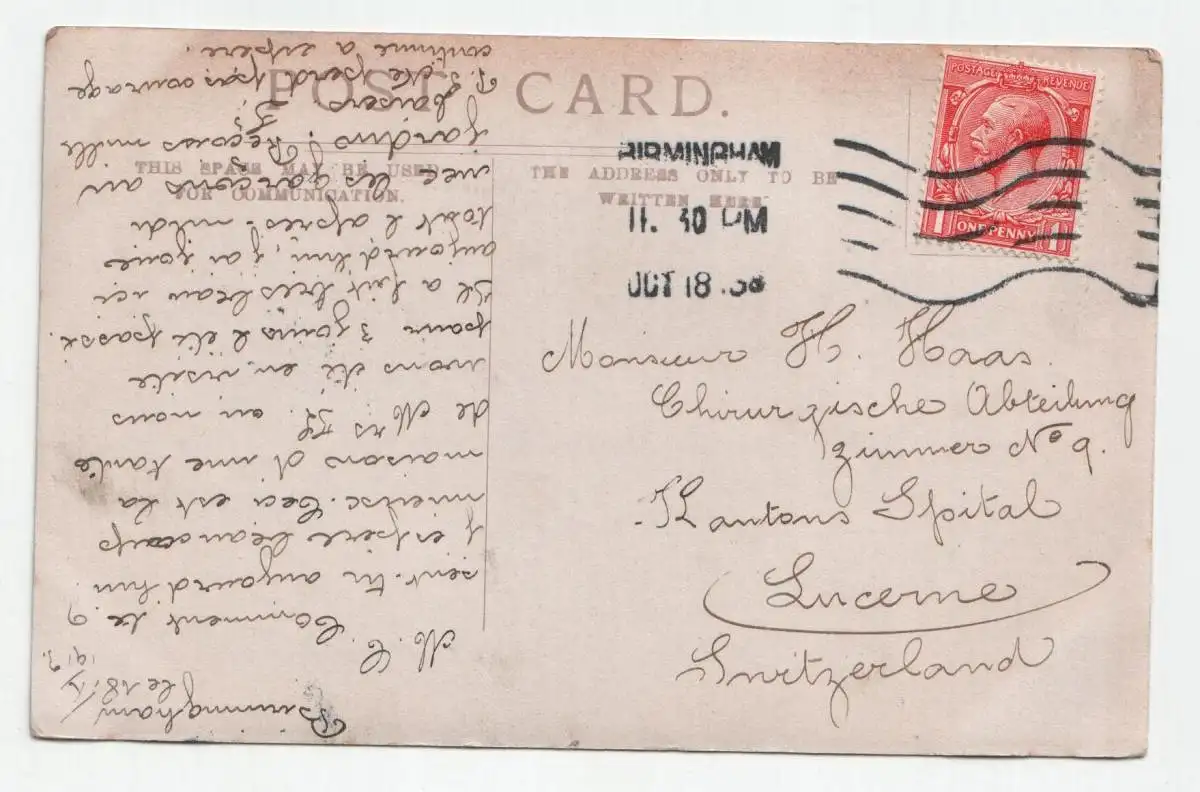 POST CARD.
THIS SPACE MAY BE USED
FOR COMMUNICATION.
THE ADDRESS ONLY TO BE
WRITTEN HERE.
POSTAGE REVENUE
1 ONE PENNY 1
BIRMINGHAM
11. 30 PM
OCT 18
Monsieur H. Haas.
Chirurgische Abteilung
Zimmer No 9.
Kantons Spital
Lucerne
Switzerland
Birmingham
le 18/X
M. C.
Comment te
sent-tu aujourd'hui ?
j'espère beaucoup
mieux. Ceci est la
maison d'une tante
de Mrs ou nous
avons été en visite
pour 3 jours l'été passé.
Il a fait très beau ici
aujourd'hui, j'ai joué
tout l'après-midi
avec les garçons au
jardin. Reçois mille
baisers
P.S. Ne perd pas courage
continue a espère.